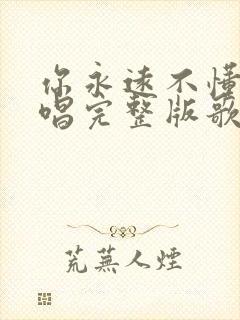 你永远不懂
唱完整版歌
荒蕪人煙